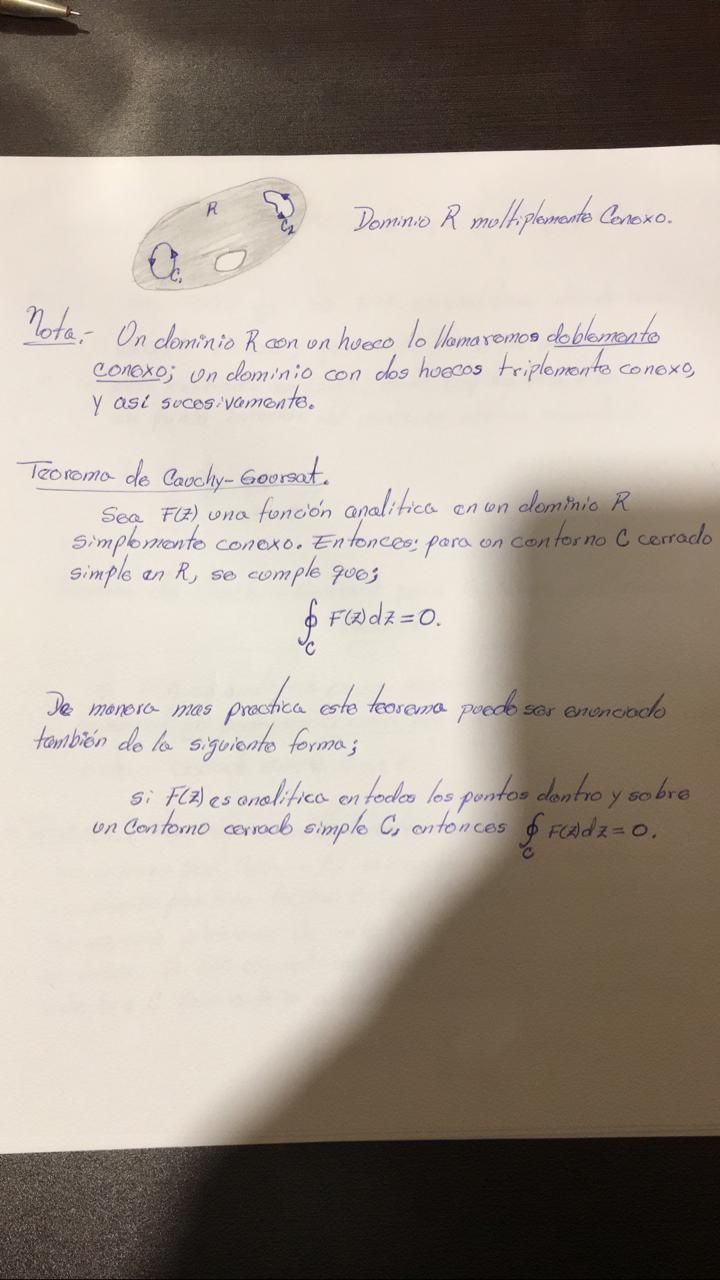 R
C₂
C₁
Dominio R multiplemente Conexo.
Nota.- Un dominio R con un hueco lo llamaremos doblemente
conexo; un dominio con dos huecos triplemente conexo,
y así sucesivamente.
Teorema de Cauchy-Goursat.
Sea F(z) una función analítica en un dominio R
simplemente conexo. Entonces; para un contorno C cerrado
simple en R, se cumple que;
∮_C F(z)dz = 0.
De manera mas practica este teorema puede ser enunciado
también de la siguiente forma;
si F(z) es analítica en todos los puntos dentro y sobre
un Contorno cerrado simple C, entonces ∮_C F(z)dz = 0.